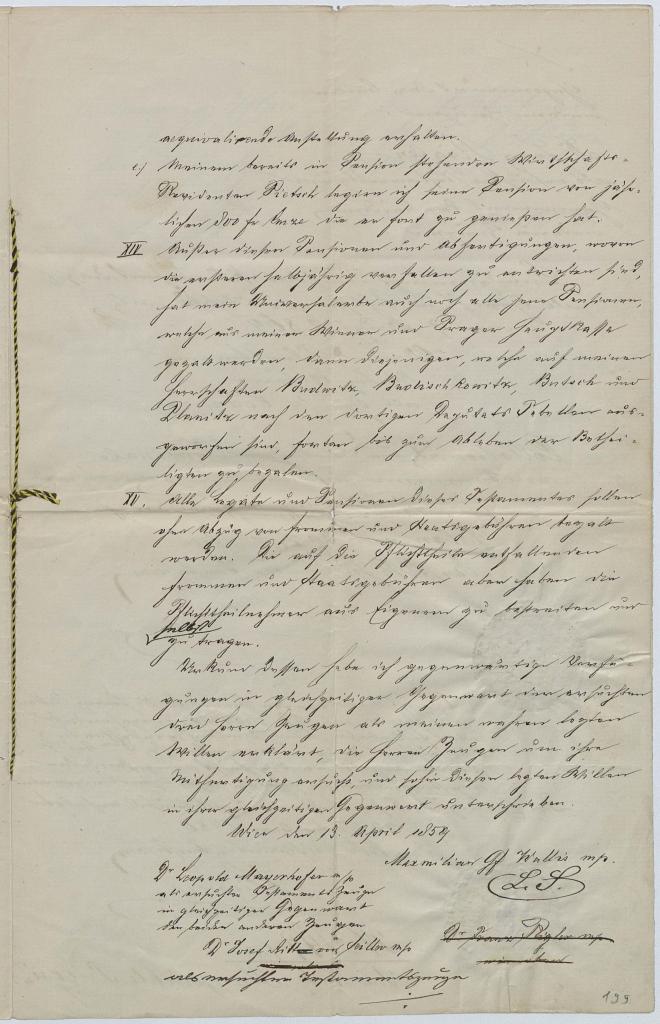 aequivalirende Anstellung erhalten.
e.) Meinem bereits in Pension stehenden Wirtschafts-
Revidenten Pietsch legire ich seine Pension von jähr-
lichen 800 fr die er fort zu genießen hat.
XIV Außer diesen Pensionen und Abfertigungen, wovon
die ersteren halbjährig verfallen zu entrichten sind,
hat mein Universalerbe auch noch alle jene Pensionen,
welche aus meiner Wiener und Prager Hauptkasse
gezalt werden, dann diejenigen, welche auf meinen
Herrschaften Budwitz, Budischkowitz, Butsch und
Planitz nach den dortigen Deputats Tabellen aus-
geworfen sind, fortan bis zum Ableben der Bethei-
ligten zu bezalen.
XV. Alle Legate und Pensionen dieses Testamentes sollen
ohne Abzug von frommen und Staatsgebühren bezalt
werden. Die auf die Pflichttheile entfallenden
frommen und Staatsgebühren aber haben die
Pflichttheilnehmer aus Eigenem zu bestreiten und
selbst
zu tragen.
Urkund dessen habe ich gegenwärtige Verfü-
gungen in gleichzeitiger Gegenwart der ersuchten
drei Herrn Zeugen als meinen wahren letzten
Willen erklärt, die Herren Zeugen um ihre
Mitfertigung ersucht, und sohin diesen letzten Willen
in ihrer gleichzeitigen Gegenwart unterschrieben.
Wien den 13. April 1854
Maxmilian Gf Wallis mp.
L. S.
Dr Leopold Mayerhofer mp
als ersuchter Testaments Zeuge
in gleichzeitiger Gegenwart
der beiden anderen Zeugen
Dr Josef Ritter von mp
als ersuchter Testamentszeuge
Dr Franz mp
199